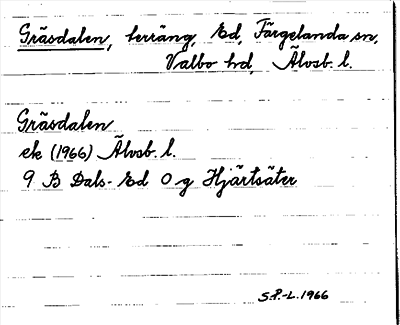 Gräsdalen, terräng, Ed, Färgelanda sn,
Valbo hd, Älvsb. l.
Gräsdalen
ek (1966) Älvsb. l.
9 B Dals-Ed O g Hjärtsäter
S.P.-L. 1966